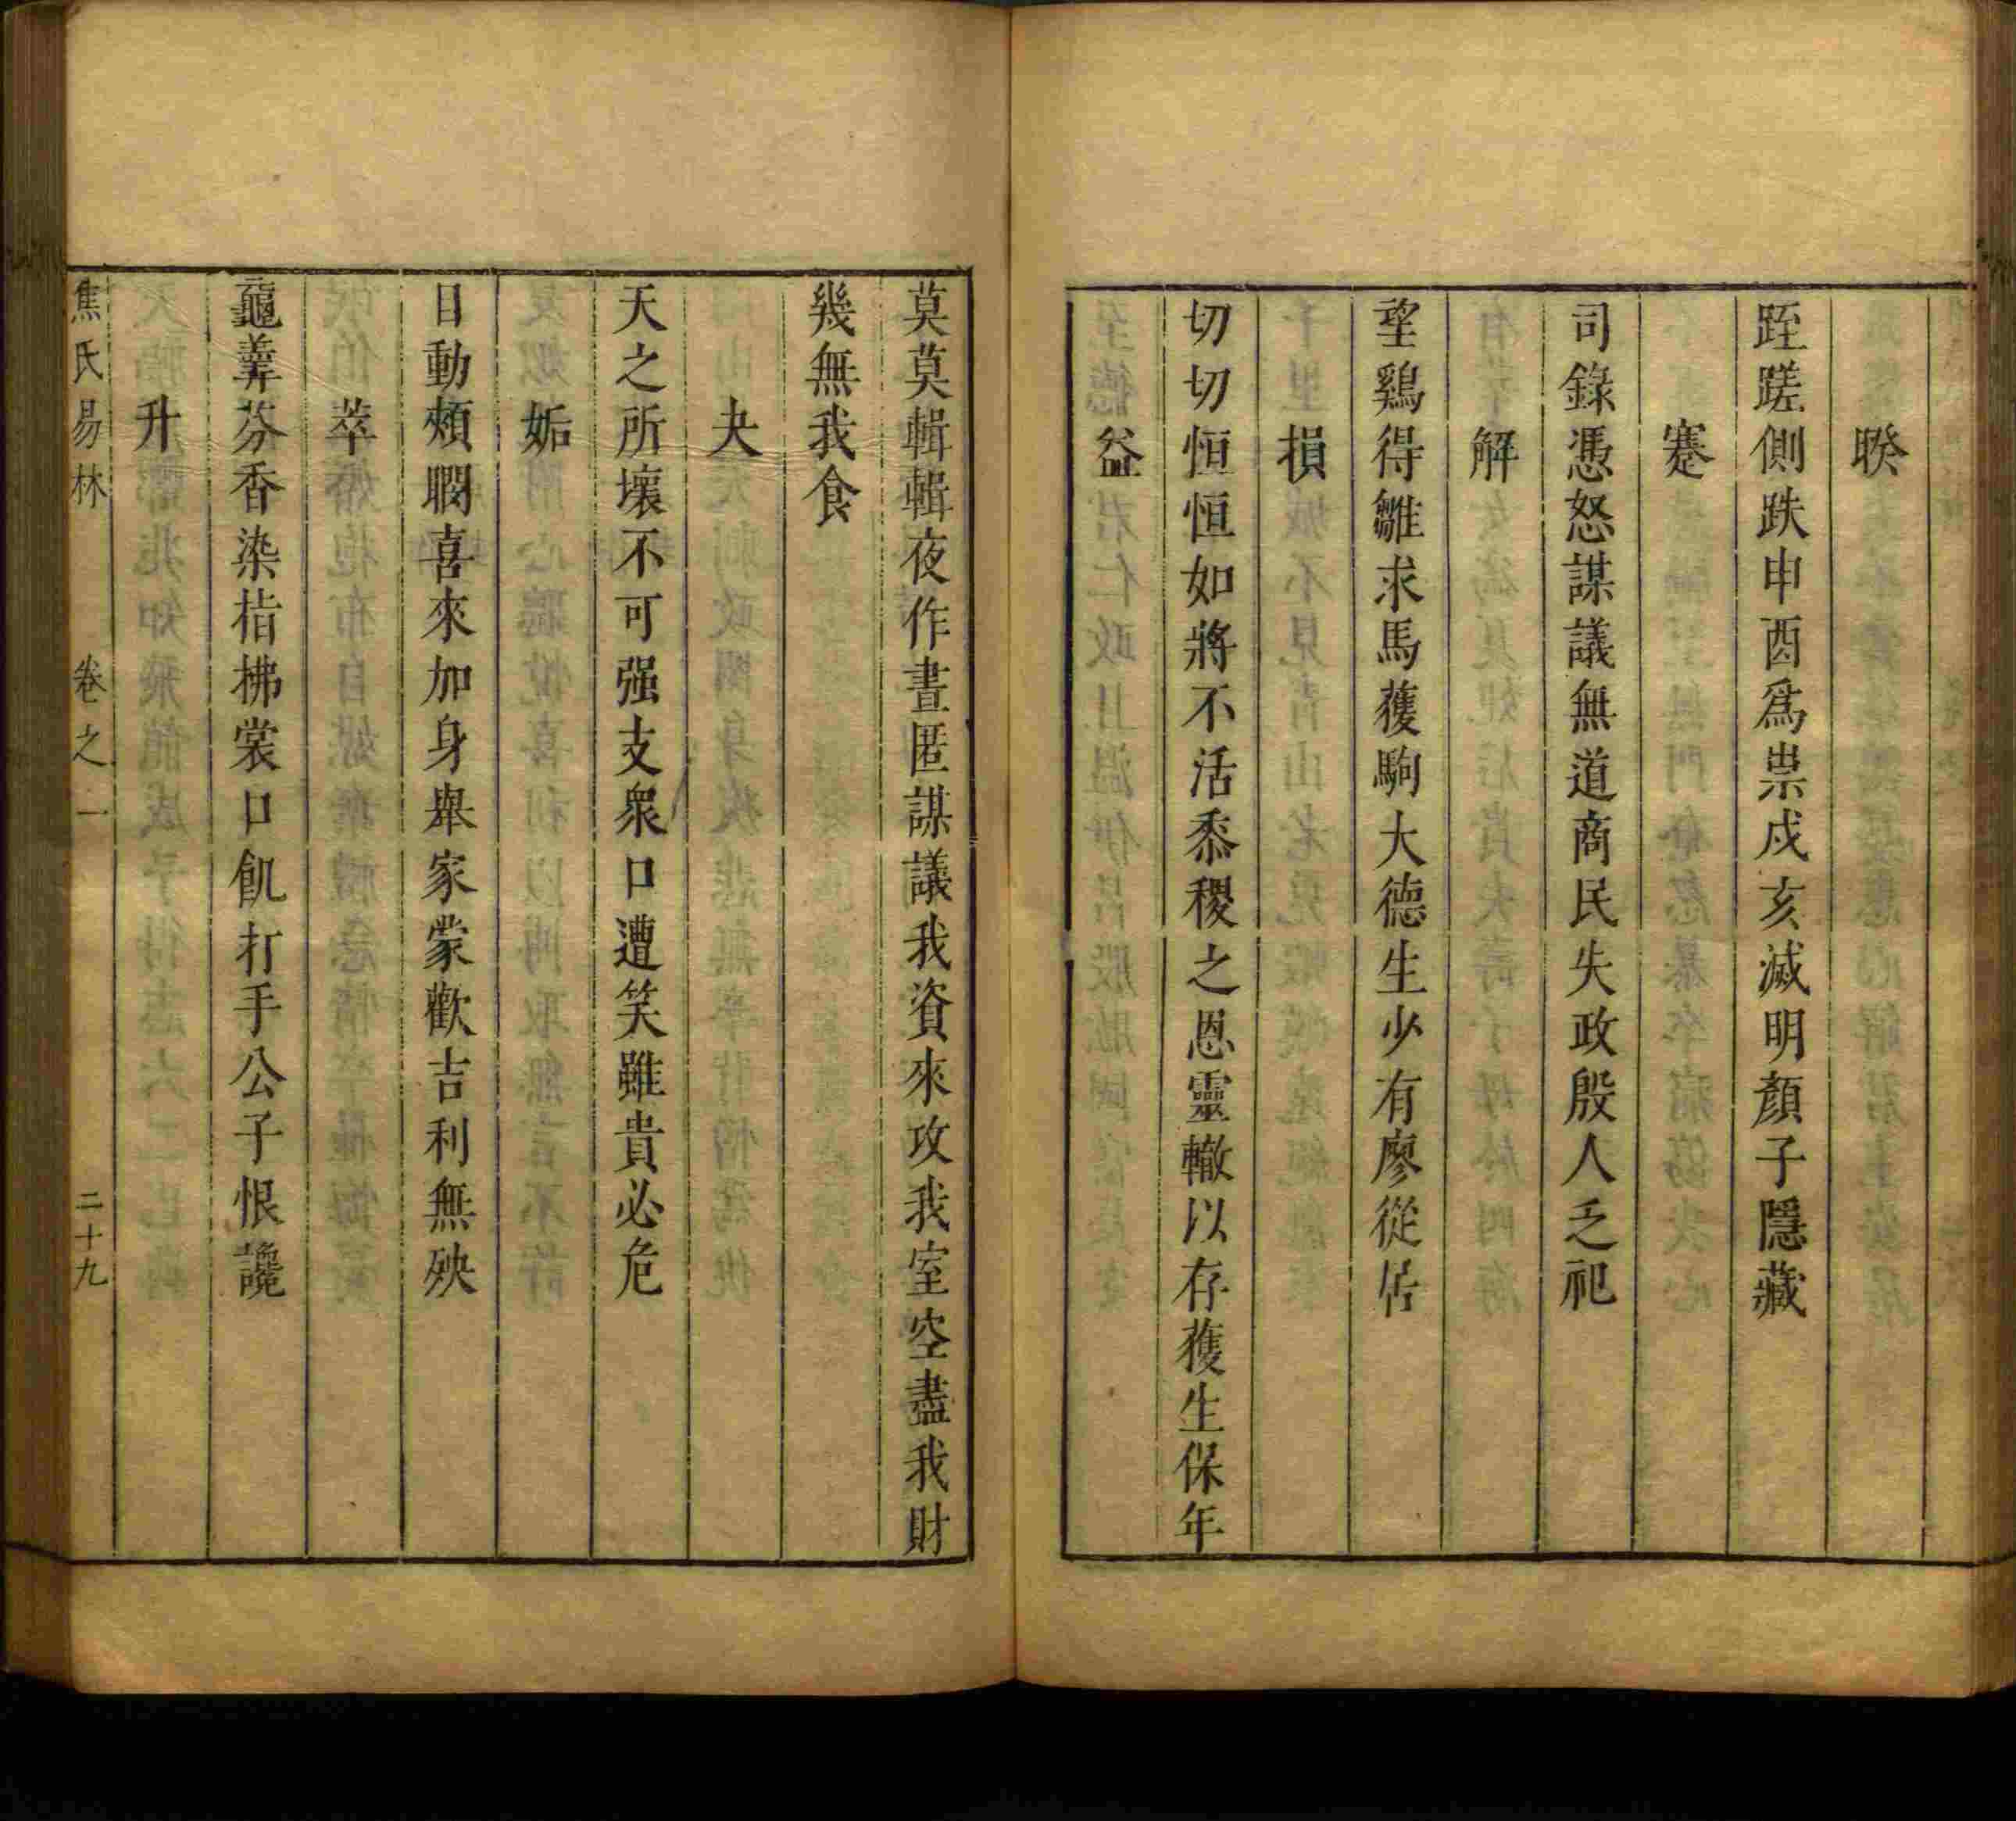 睽
跮蹉側跌申酉爲祟戍亥滅明顏子隱藏
蹇
司錄憑怒謀議無道商民失政殷人乏祀
解
望鷄得雛求馬獲駒大德生少有廖從居
損
切切恒恒如將不活黍稷之恩靈轍以存獲生保年
益
莫莫輯輯夜作晝匿謀議我資來攻我室空盡我財
幾無我食
夬
天之所壞不可强支衆口遭笑雖貴必危
姤
目動頰𥈆喜來加身舉家蒙歡吉利無殃
萃
龜羹芬香染指拂裳口飢打手公子恨讒
升
焦氏易林 卷之一 二十九